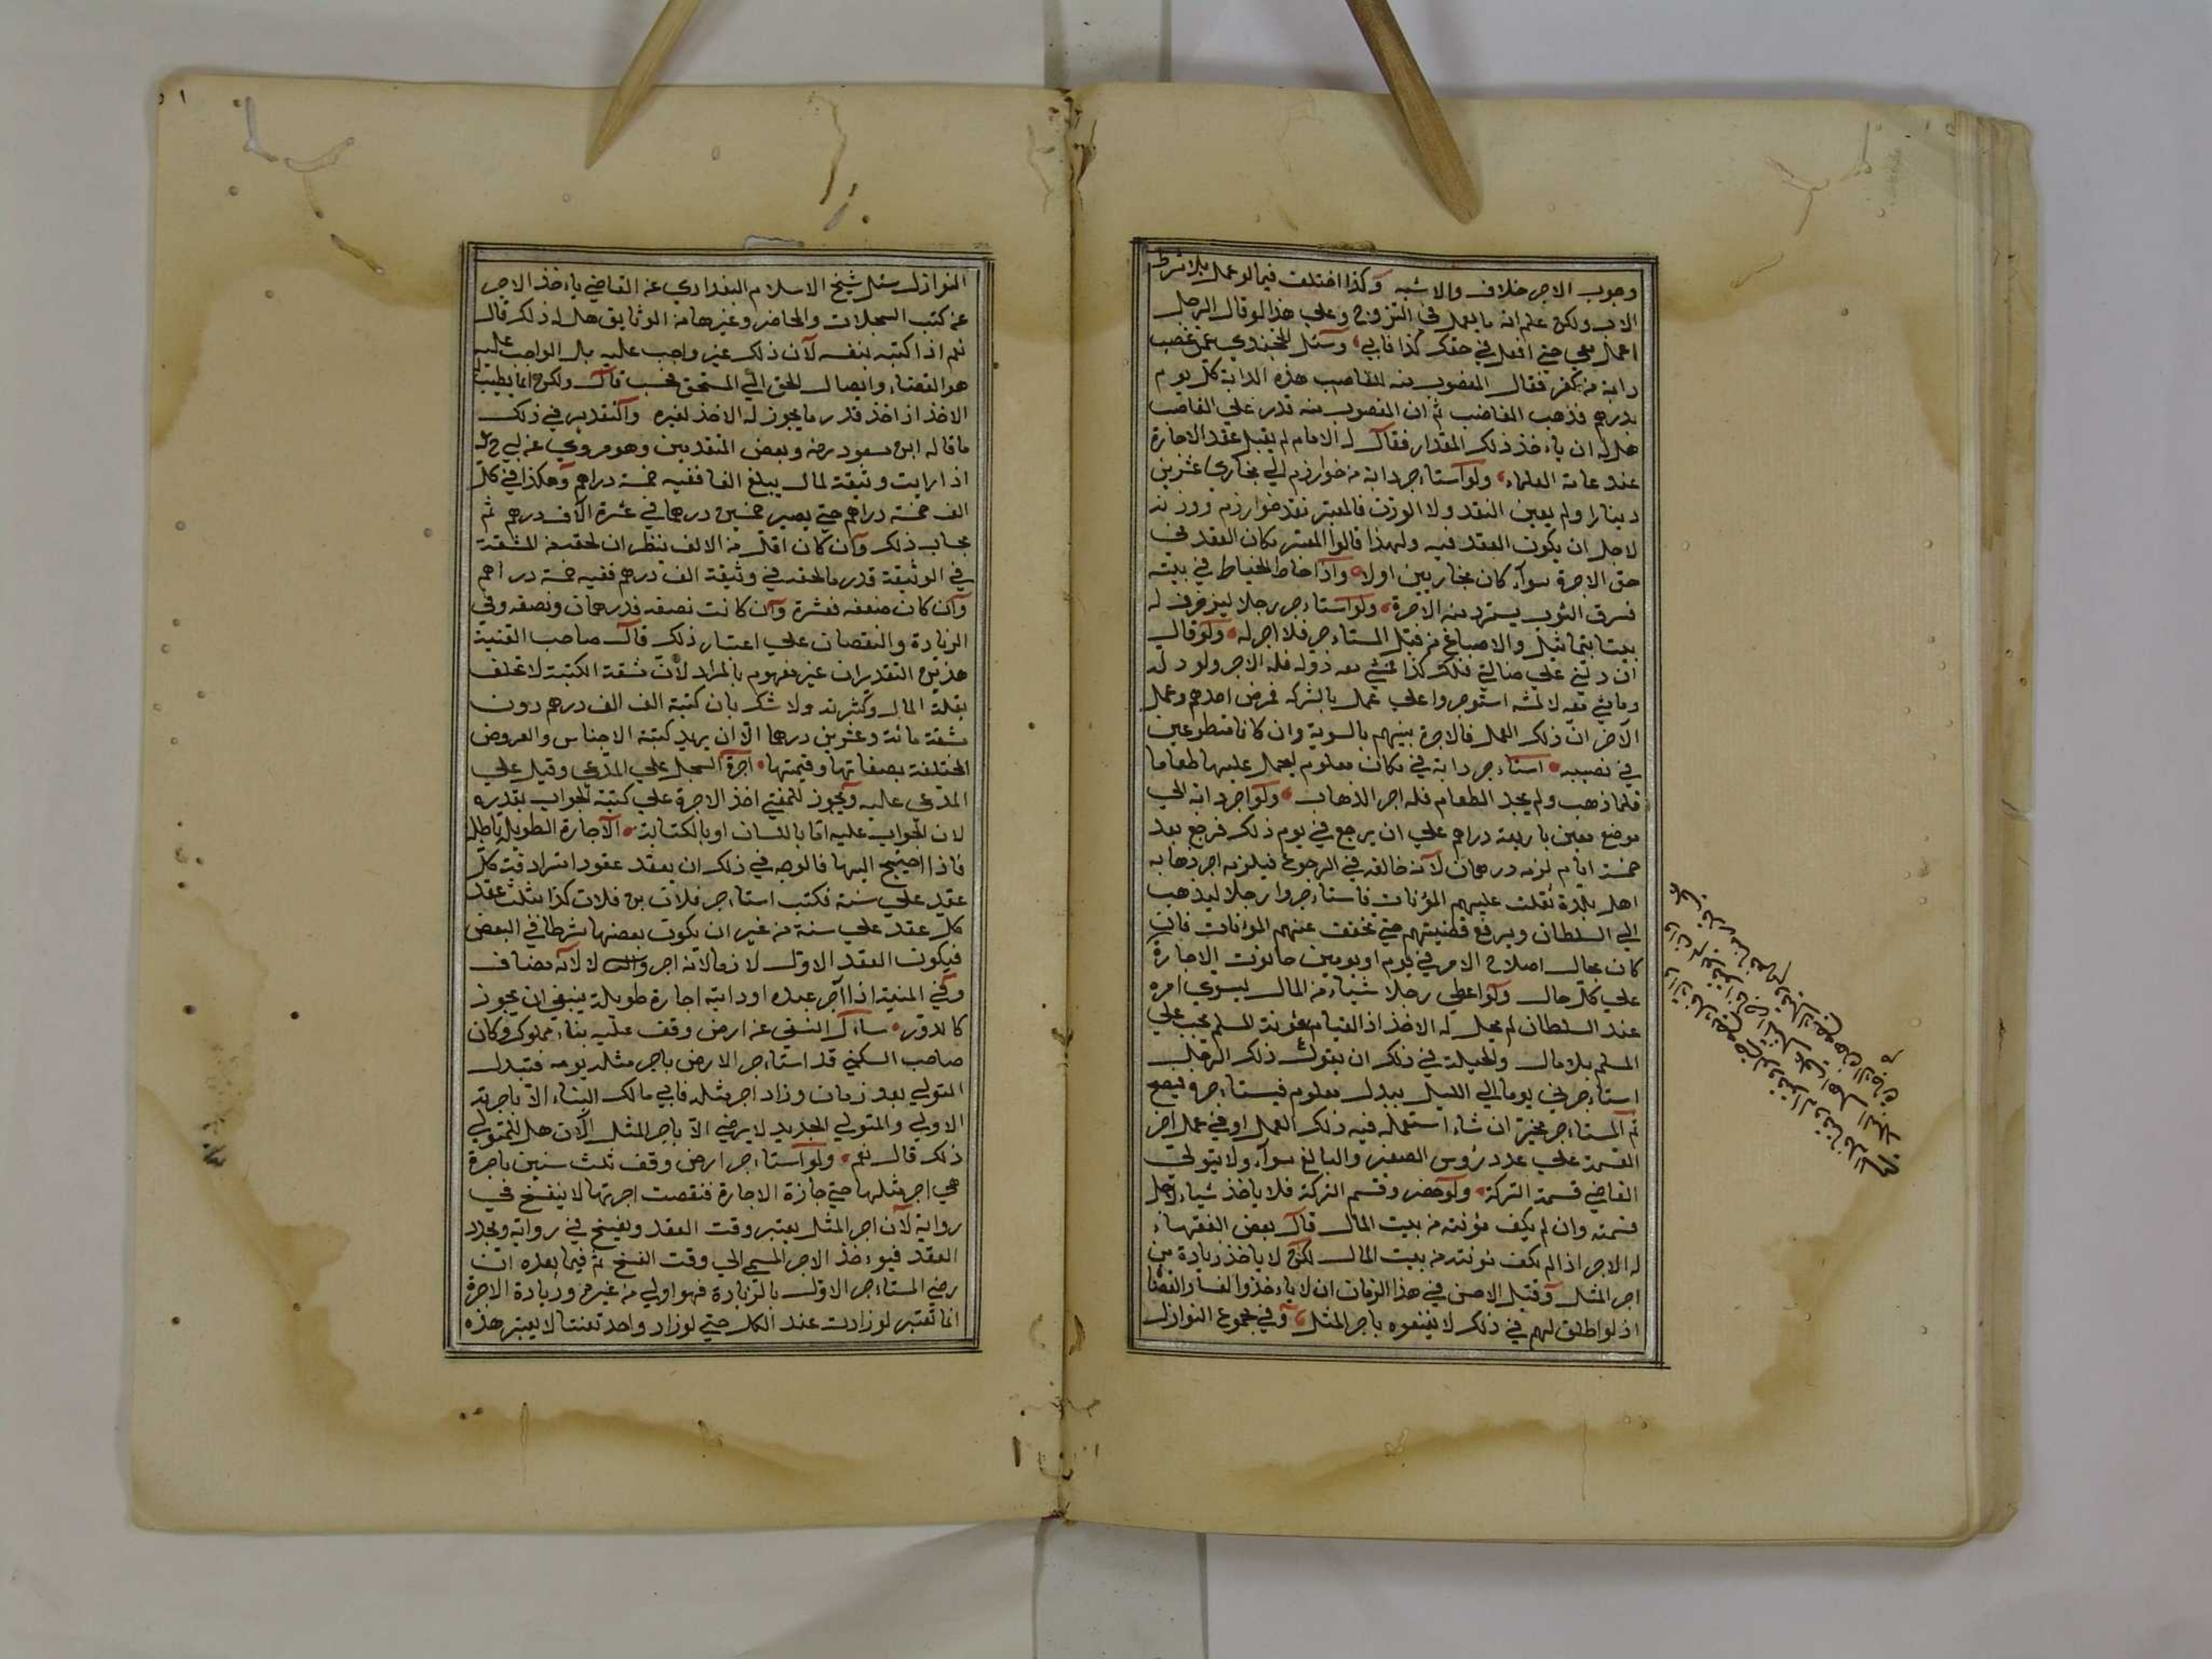 وجوب الاجر خلاف والاشبه وكذا اختلف فيما لو عمل بلا شرط
الاب ولكن علم انه ما يعمل في التزوج وعلي هذا لو قال الرجل
اعمل معي حتي افعل في حقك كذا فابي وسئل الخجندي عمن غصب
دابة من كفر فقال المغصوب منه للغاصب هذه الدابة كل يوم
بدرهم فذهب الغاصب ثم ان المغصوب منه قدر علي الغاصب
هل له ان يأخذ ذلك المقدار فقال له الامام لم يقبل عقد الاجارة
عند عامة العلماء ولو آستاءجر دابة من خوارزم الي بخاري بعشرين
دينارا ولم يعين النقد ولا الوزن فالمعتبر نقد خوارزم ووزنه
لاجل ان يكون العقد فيه ولهذا قالوا المعتبر مكان العقد في
حق الاجرة سوآء كان بخاريين اولا وآذا خاط الخياط في بيته
فسرق الثوب يسترد منه الاجرة ولو آستاءجر رجلا ليزخرف له
بيتا بتماثيل والاصباغ من قبل المستاءجر فلا اجر له ولو قال
ان دلني علي ضالتي فلك كذا فمشي معه فدله فله الاجر ولو دله
وما مشي معه لا لمشه استوجروا علي عمل بالشركة فمرض احدهم وعمل
الآخران ذلك العمل فالاجرة بينهم بالسوية وان كانا متطوعين
في نصيبه استاءجر دابة في مكان معلوم ليحمل عليها طعاما
فلما ذهب ولم يجد الطعام فله اجر الذهاب ولو آجر دابة الي
موضع معين باربعة دراهم علي ان يرجع في يوم ذلك فرجع بعد
خمسة ايام لزمه درهمان لآنه خالفه في الرجوع فيلزمه اجر ذهابه
اهل بلدة ثقلت عليهم المؤنات فاستاءجروا رجلا ليذهب
الي السلطان ويرفع قضيتهم حتي تخفف عنهم المؤنات فان
كان بحال اصلاح الامر في يوم او يومين جازت الاجارة
علي كل حال ولو اعطي رجلا شياء من المال ليسوي امره
عند السلطان لم يحل له الاخذ اذ القيام بمؤنة المسلم يجب علي
المسلم بلا مال والحيلة في ذلك ان يقول ذلك الرجل
استاءجرني يوما الي الليل ببدل معلوم فيستاءجر ويصح
ثم المستاءجر مخير ان شاء استعمله فيه ذلك العمل او في عمل آخر
القسمة علي عدد رؤس الصغير والبالغ سوآء ولا يتولي
القاضي قسمة التركة ولو حضر وقسم التركة فلا ياخذ شياء لاجل
قسمته وان لم يكف مؤنته من بيت المال قال بعض الفقهاء
له الاجر اذا لم يكف مؤنته من بيت المال لكن لا ياخذ زيادة من
اجر المثل وقيل الاحسن في هذا الزمان ان لا ياءخذوا لفساد القضا
اذ لو اطلق لهم في ذلك لا يقنعوه باجر المثل وفي مجموع النوازل
النوازل سئل شيخ الاسلام البغدادي عن القاضي ياءخذ الاجر
عن كتب السجلات والمحاضر وغيرها من الوثايق هل له ذلك قال
نعم اذا كتبه بنفسه لآن ذلك غير واجب عليه بل الواجب عليه
هو القضاء وايصال الحق الي المستحق فحسب قال ولكن انما يطيب له
الاخذ اذا خذ قدر ما يجوز له الاخذ لغيره والتقدير في ذلك
ما قاله ابن مسعود رضه وبعض المتقدمين وهو مروي عن ابي ح
اذا رايت وثيقة لمال يبلغ الفا ففيه خمسة دراهم وهكذا في كل
الف خمسة دراهم حتي يصير خمسين درهما في عشرة آلاف درهم ثم
بحساب ذلك وآن كان اقل من الالف ينظر ان لحقه من المشقة
في الوثيقة قدر ما لحقه في وثيقة الف درهم ففيه خمسة دراهم
وآن كان ضعفه فعشرة وآن كانت نصفه فدرهمان ونصفه وفي
الزيادة والنقصان علي اعتبار ذلك قال صاحب القنية
هذين التقديران غير مفهوم بالمراد لآن مشقة الكتبة لا تختلف
بقلة المال وكثرته ولا شك بان كتبة الف الف درهم دون
مشقة مائة وعشرين درهما الآ ان يريد كتبة الاجناس والعروض
المختلفة بصفاتها وقيمتها آجرة السجل علي المدعي وقيل علي
المدعي عليه ويجوز للمفتي اخذ الاجرة علي كتبة الجواب بقدره
لان الجواب عليه اما باللسان او بالكتابة الآجارة الطويلة باطلة
فاذا احتيج اليها فالوجه في ذلك ان يعقد عقودا مترادفة كل
عقد علي سنة فكتب استاءجر فلان بن فلان كذا بثلث عقد
كل عقد علي سنة من غير ان يكون بعضها شرطا في البعض
فيكون العقد الاول لازما لانه اجر والثاني لا لانه مضاف
وفي المنية اذا آجر عبده او دابته اجارة طويلة ينبغي ان يجوز
كالدور ساءل النسفي عن ارض وقف عليه بناء مملوك وكان
صاحب السكني قد استاءجر الارض باجر مثله يومه فتبدل
المتولي بعد زمان وزاد اجر مثله فابي مالك البناء الآ باجرته
الاولي والمتولي الجديد لا يرضي الآ باجر المثل الآن هل للمتولي
ذلك قال نعم ولو آستاءجر ارض وقف ثلث سنين باجرة
هي اجر مثلها حتي جازة الاجارة فنقصت اجرتها لا ينفسخ في
رواية لآن اجر المثل يعتبر وقت العقد ويفسخ في رواية ويجدد
العقد فيوءخذ الاجر المسمي الي وقت الفسخ ثم فيما بعده ان
رضي المستاءجر الاول بالزيادة فهو اولي من غيره وزيادة الاجرة
انما تعتبر لو زادت عند الكل حتي لو زاد واحد تعنتا لا يعتبر هذه